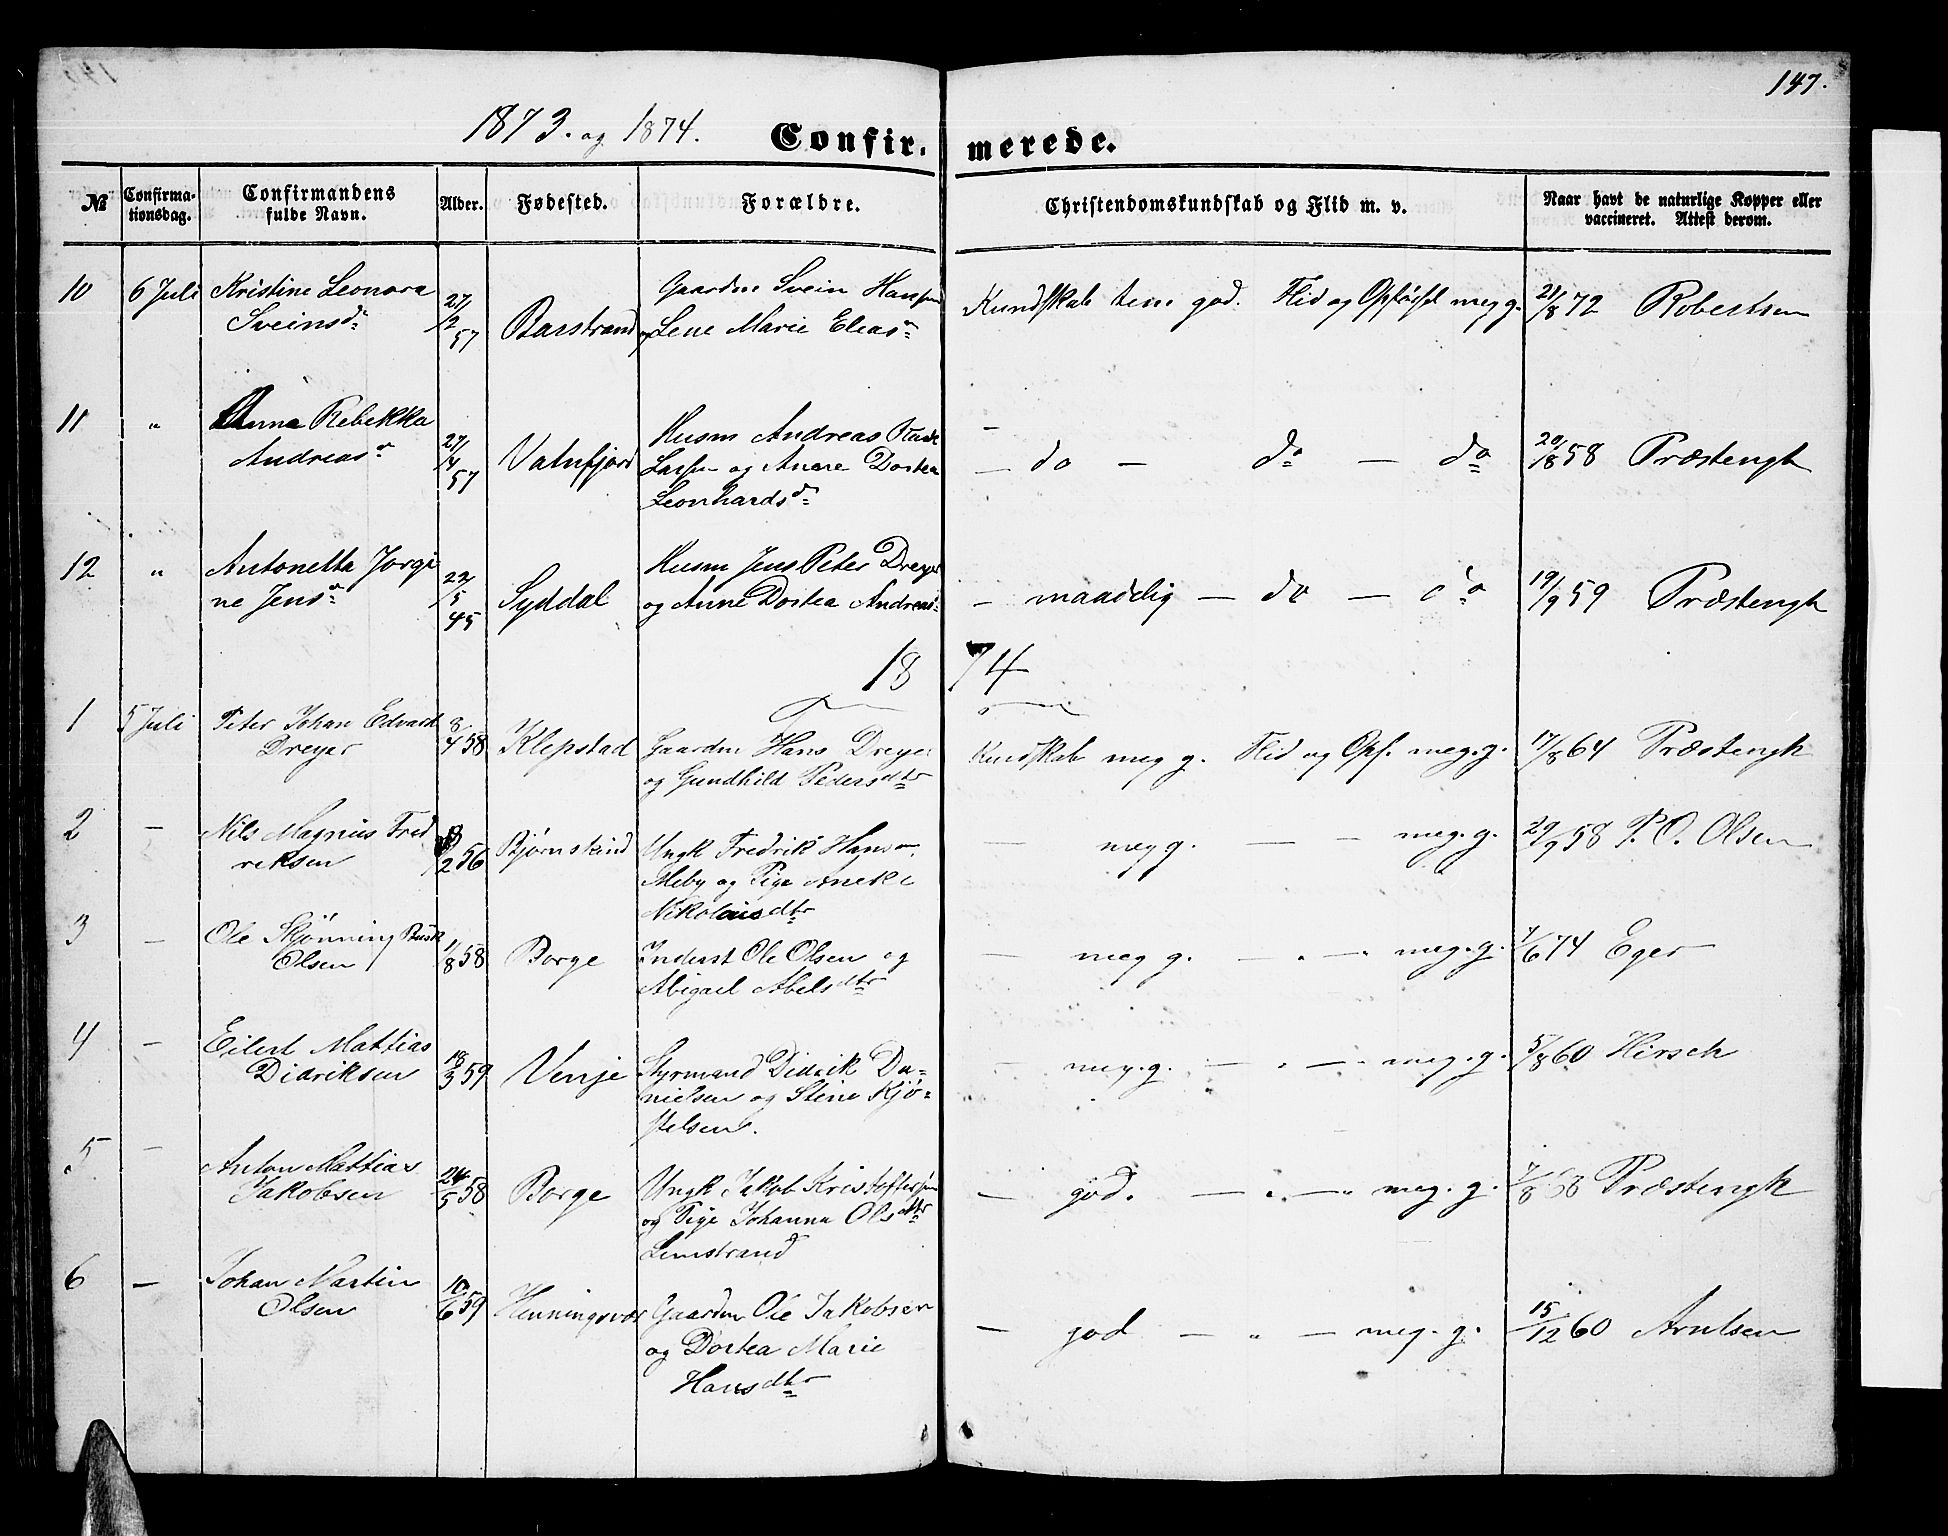 147.
1873. og 1874.
Confir. merede.
№ Confirma-tionsdag. Confirmandens fulde Navn. Alder. Fødested. Forældre. Christendomskundskab og Flid m. v. Naar havt de naturlige Kopper eller vaccineret. Attest derom.
10 6 Juli Kristine Leonora 27/2 57 Barstrand Gaardm Svein Hansen Kundskab tem god. Flid og Opførsel meg g. 21/8 72 Robertsen
Sveinsd. og Lene Marie Eleasd.
11 " Anna Rebekka 27/4 57 Vatnfjord Husm Andreas
Andreasd. Larsen og Anne Dortea — do — do — do 20/8 58 Præstengk
Leonhardsd.
12 " Antonetta Jørgi 22/5 45 Syddal Husm Jens Peter Dreyer
ne Jensd. og Anne Dortea Andreasd. — maadelig — do — do 19/9 59 Præstengk
1874
1 5 Juli Peter Johan Edvard 8/4 58 Klepstad Gaardm Hans Dreyer Kundskab meg g. Flid og Opf. meg. g. 17/8 64 Præstengk
Dreyer og Gundhild Pedersdtr
2 — Nils Magnus Fred 2 56 Bjørnskind Ungk Fredrik Hans — meg g. — — meg. g. 29/9 58 P. O. Olsen
reksen og Pige
Nikolaisdtr
3 — Ole Skjønning 1/8 58 Borge Inderst Ole Olsen og — meg g. — " — meg. g. 7/6 74 Eger
Olsen Abigael Abelsdtr
4 — Eilert Mattias 18/3 59 Venje Styrmand Didrik Da- — meg. g. — " — meg. g. 5/8 60 Hirsch
Didriksen nielsen og Stine Kjø-
stelsen.
5 — Anton Mattias 24/5 58 Borge Ungk Jakob Kristoffersen — god. — " — meg. g. 7/8 58 Præstengk
Jakobsen og Pige Johanna Olsdtr
Limstrand
6 — Johan Martin 10/6 59 Henningsvær Gaardm Ole Jakobsen — god — " — meg. g. 15/12 60 Arntsen
Olsen og Dortea Marie
Hansdtr